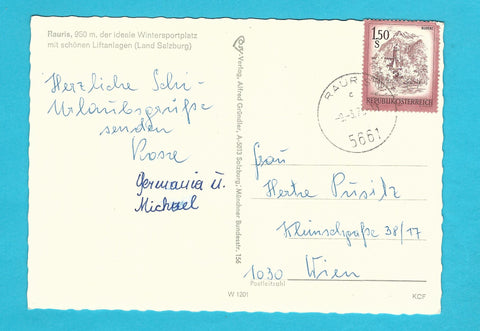 Rauris, 950 m, der ideale Wintersportplatz
mit schönen Liftanlagen (Land Salzburg)
Herzliche Schi-
Urlaubsgrüße
senden
Germania u.
Michael
Verlag, Alfred Gründler, A-5013 Salzburg, Münchner Bundesstr. 156
W 1201
1.50
S
REPUBLIK ÖSTERREICH
RAURIS
c
5661
Frau
Herta
38/17
1030 Wien
Postleitzahl
KCF